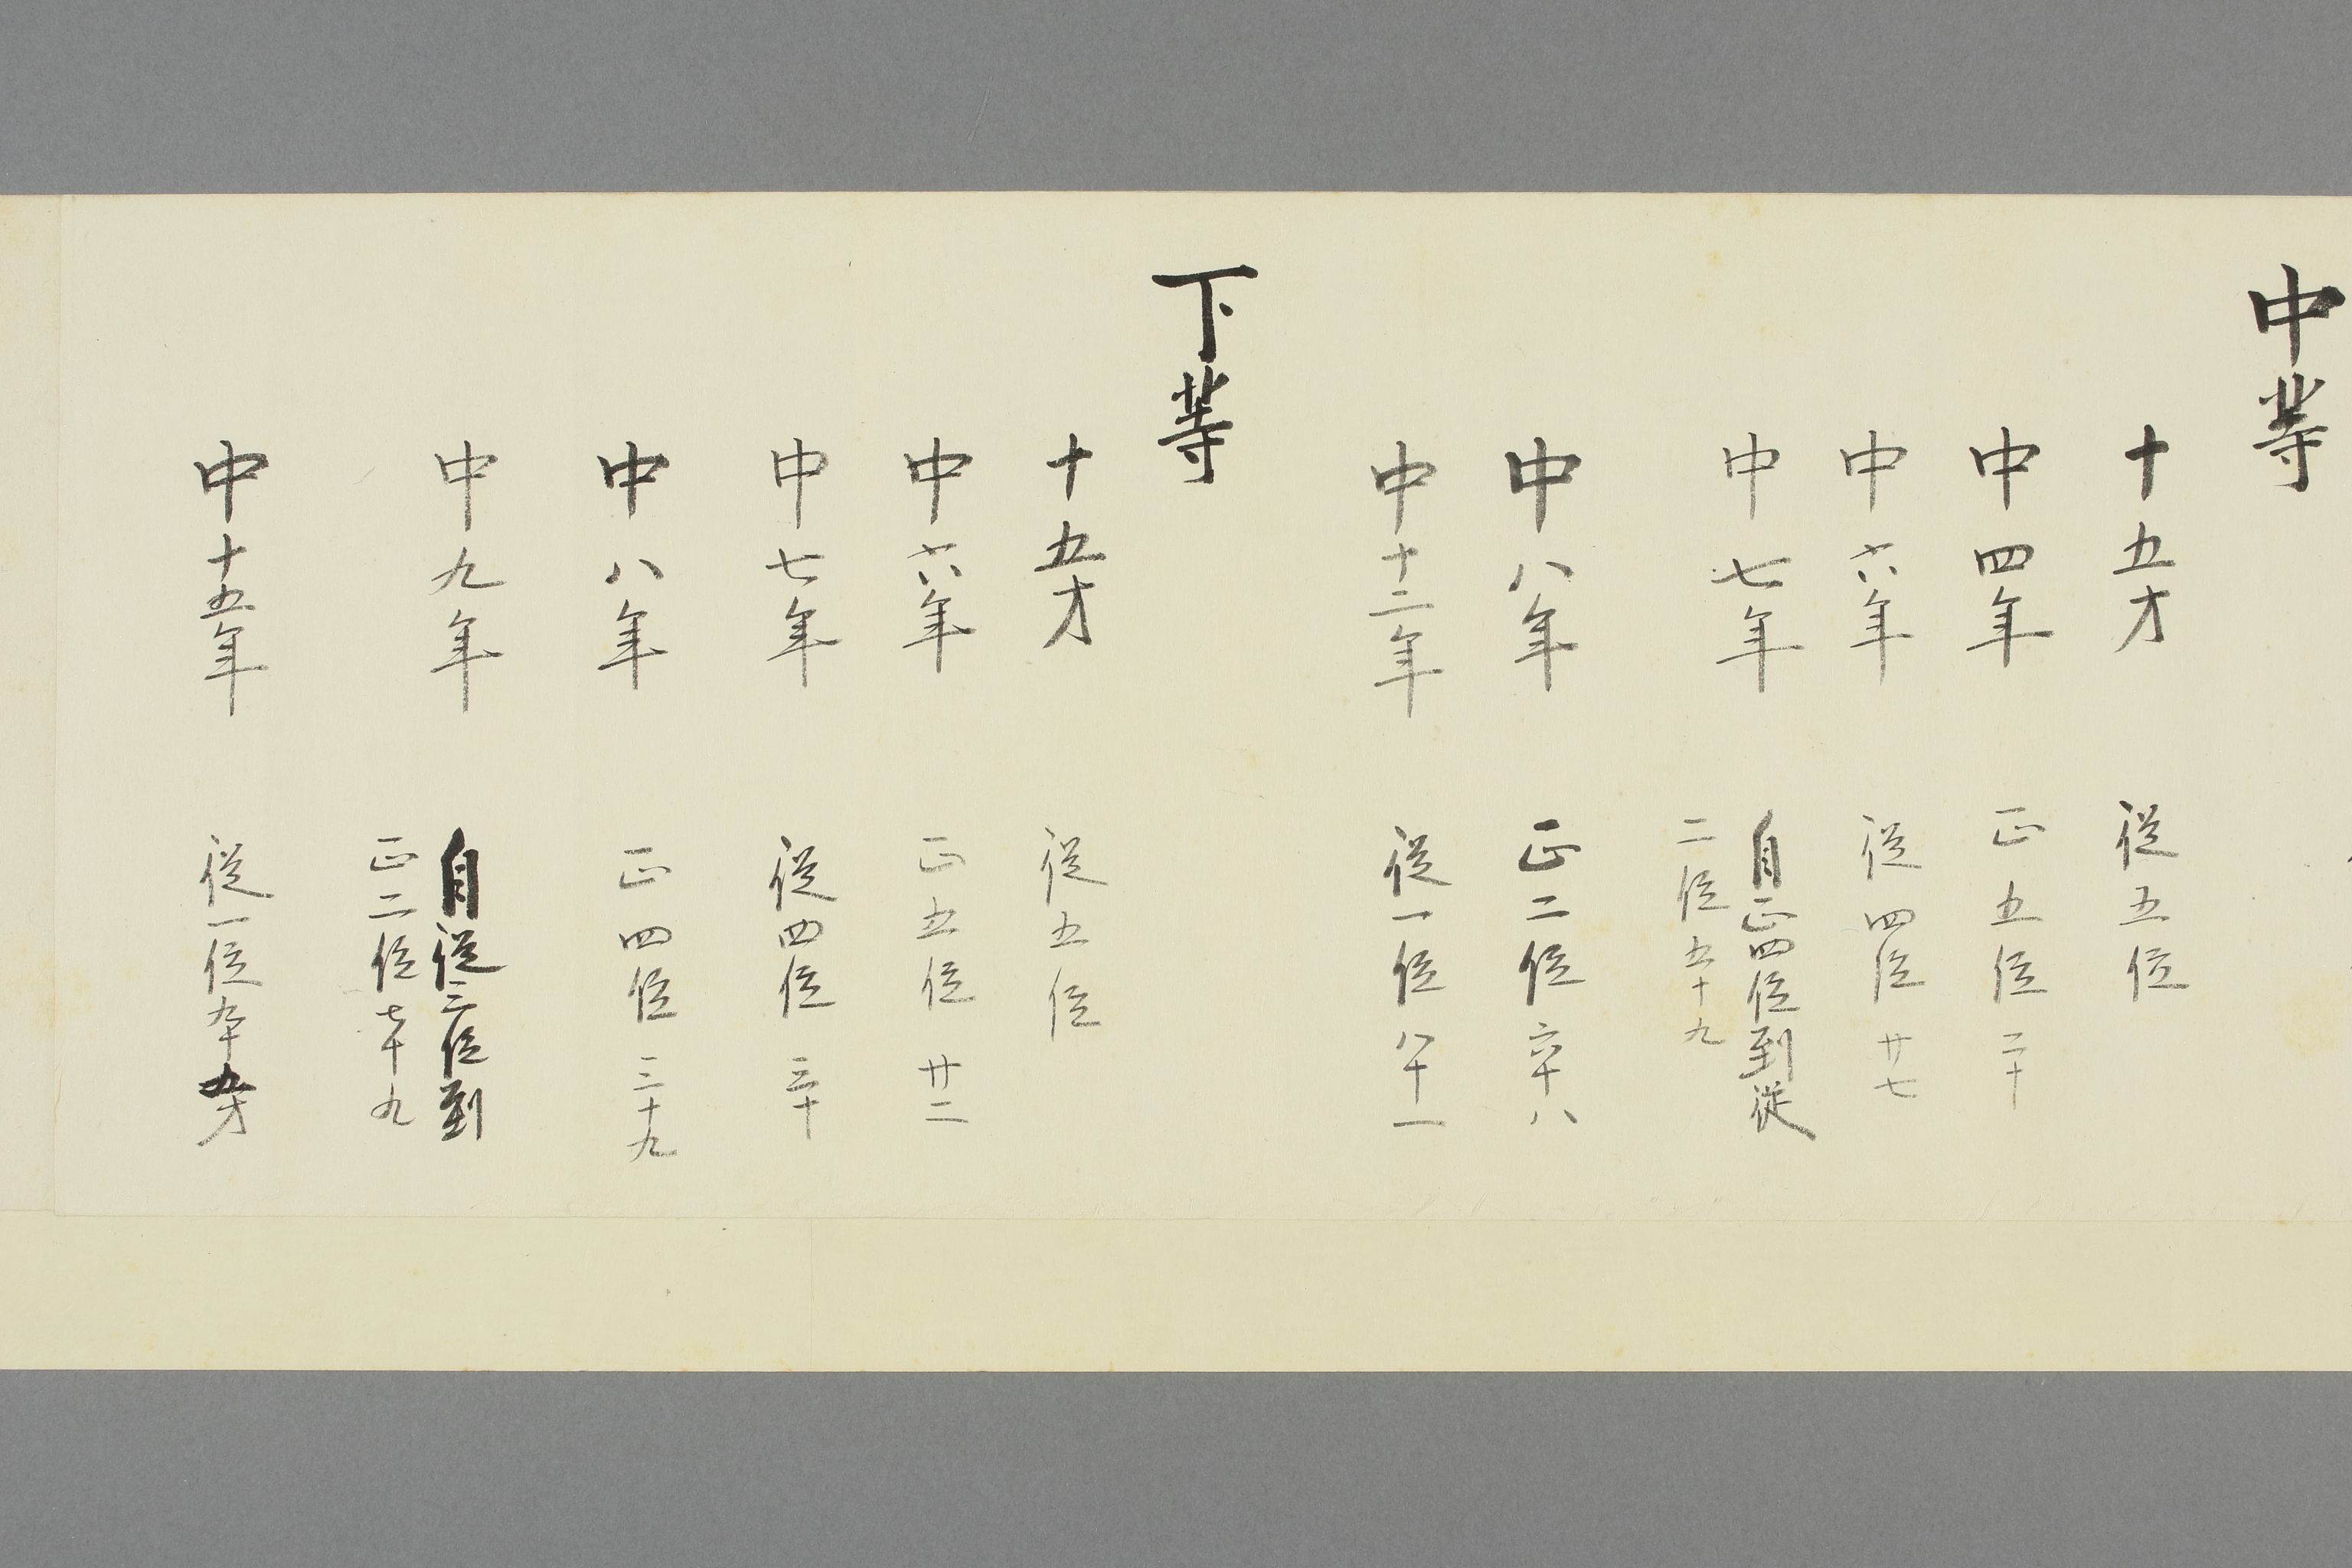 中等
十五才 従五位
中四年 正五位 二十
中六年 従四位 廿七
中七年 自正四位到従
二位 五十九
中八年 正二位 六十八
中十二年 従一位 八十一
下等
十五才 従五位
中六年 正五位 廿二
中七年 従四位 三十
中八年 正四位 三十九
中九年 自従三位到
正二位 七十九
中十五年 従一位 九十九才